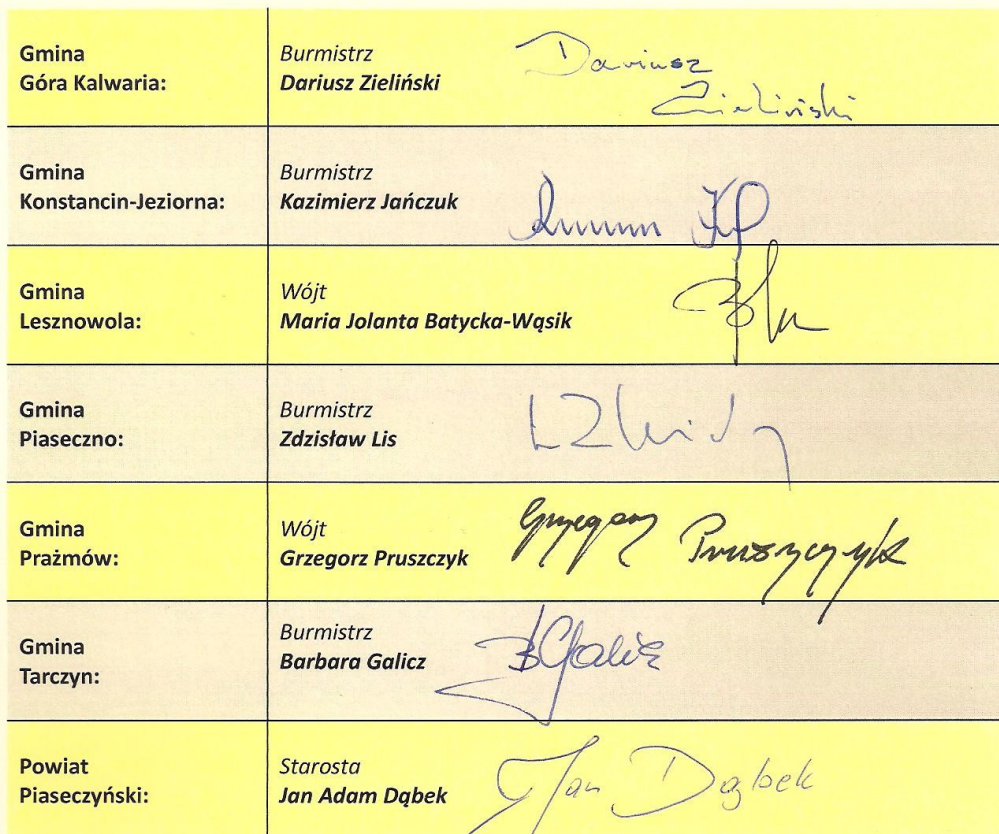 Gmina
Góra Kalwaria:
Burmistrz
Dariusz Zieliński
Dariusz
Zieliński
Gmina
Konstancin-Jeziorna:
Burmistrz
Kazimierz Jańczuk
Gmina
Lesznowola:
Wójt
Maria Jolanta Batycka-Wąsik
Gmina
Piaseczno:
Burmistrz
Zdzisław Lis
Gmina
Prażmów:
Wójt
Grzegorz Pruszczyk
Grzegorz Pruszczyk
Gmina
Tarczyn:
Burmistrz
Barbara Galicz
BGalicz
Powiat
Piaseczyński:
Starosta
Jan Adam Dąbek
Jan Dąbek